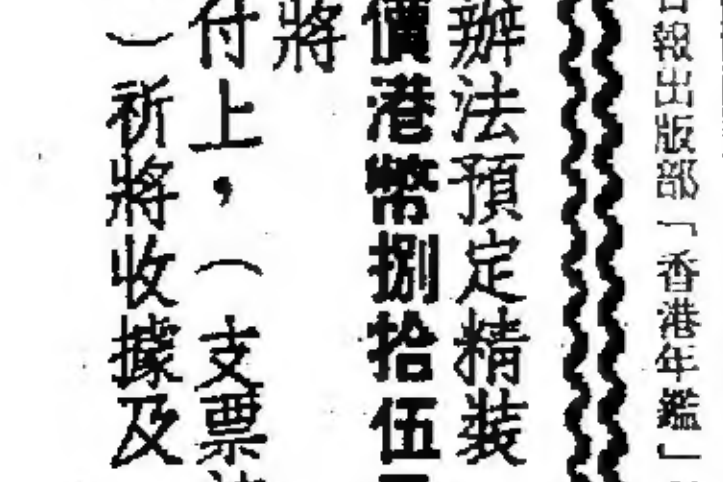 報出版部「香港年鑑」
辦法預定精裝
價港幣捌拾伍
將
付上，（支票
）祈將收據及